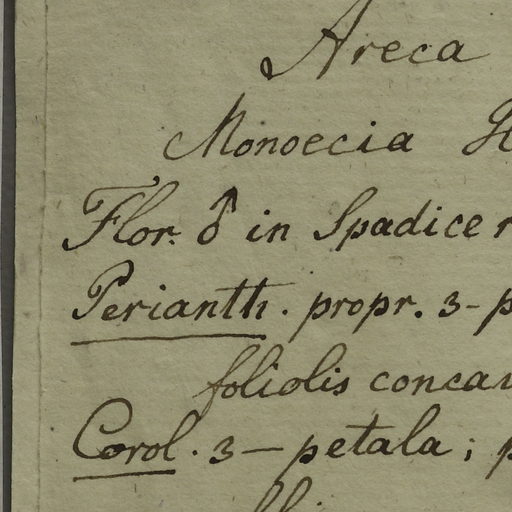 Areca
Monoecia
Flor. ♂ in Spadice
Perianth. propr. 3-
foliolis
Corol. 3 — petala;